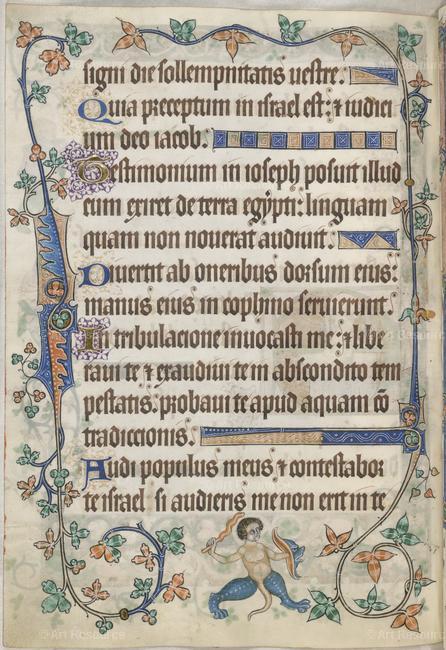 signi die sollempnitatis uestre.
Quia preceptum in israel est: ⁊ iudici
um deo iacob.
Testimonium in ioseph posuit illud
cum exiret de terra egypti: linguam
quam non nouerat audiuit.
Diuertit ab oneribus dorsum eius:
manus eius in cophino seruierunt.
In tribulacione inuocasti me: ⁊ libe
raui te ⁊ exaudiui te in abscondito tem
pestatis: probaui te apud aquam cō
tradiccionis.
Audi populus meus ⁊ contestabor
te israel si audieris me non erit in te
© Art Resource